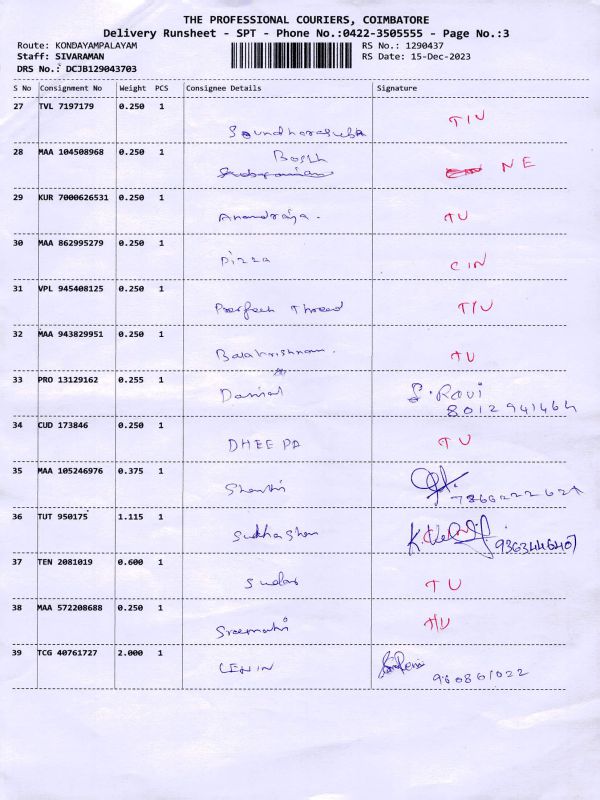 THE PROFESSIONAL COURIERS, COIMBATORE
Delivery Runsheet - SPT - Phone No.:0422-3505555 - Page No.:3
Route: KONDAYAMPALAYAM RS No.: 1290437
Staff: SIVARAMAN RS Date: 15-Dec-2023
DRS No.: DCJB129043703
S No Consignment No Weight PCS Consignee Details Signature
27 TVL 7197179 0.250 1 T/U
28 MAA 104508968 0.250 1 NE
29 KUR 7000626531 0.250 1 Anandraja. TU
30 MAA 862995279 0.250 1 Pizza CIN
31 VPL 945408125 0.250 1 Perfect Thread T/U
32 MAA 943829951 0.250 1 Balakrishnan. TU
33 PRO 13129162 0.255 1 Danial S. Ravi
8012941464
34 CUD 173846 0.250 1 DHEEPA TU
35 MAA 105246976 0.375 1 Shanthi
36 TUT 950175 1.115 1 9363446407
37 TEN 2081019 0.600 1 TU
38 MAA 572208688 0.250 1 Sreemathi T/U
39 TCG 40761727 2.000 1 LENIN 960861022